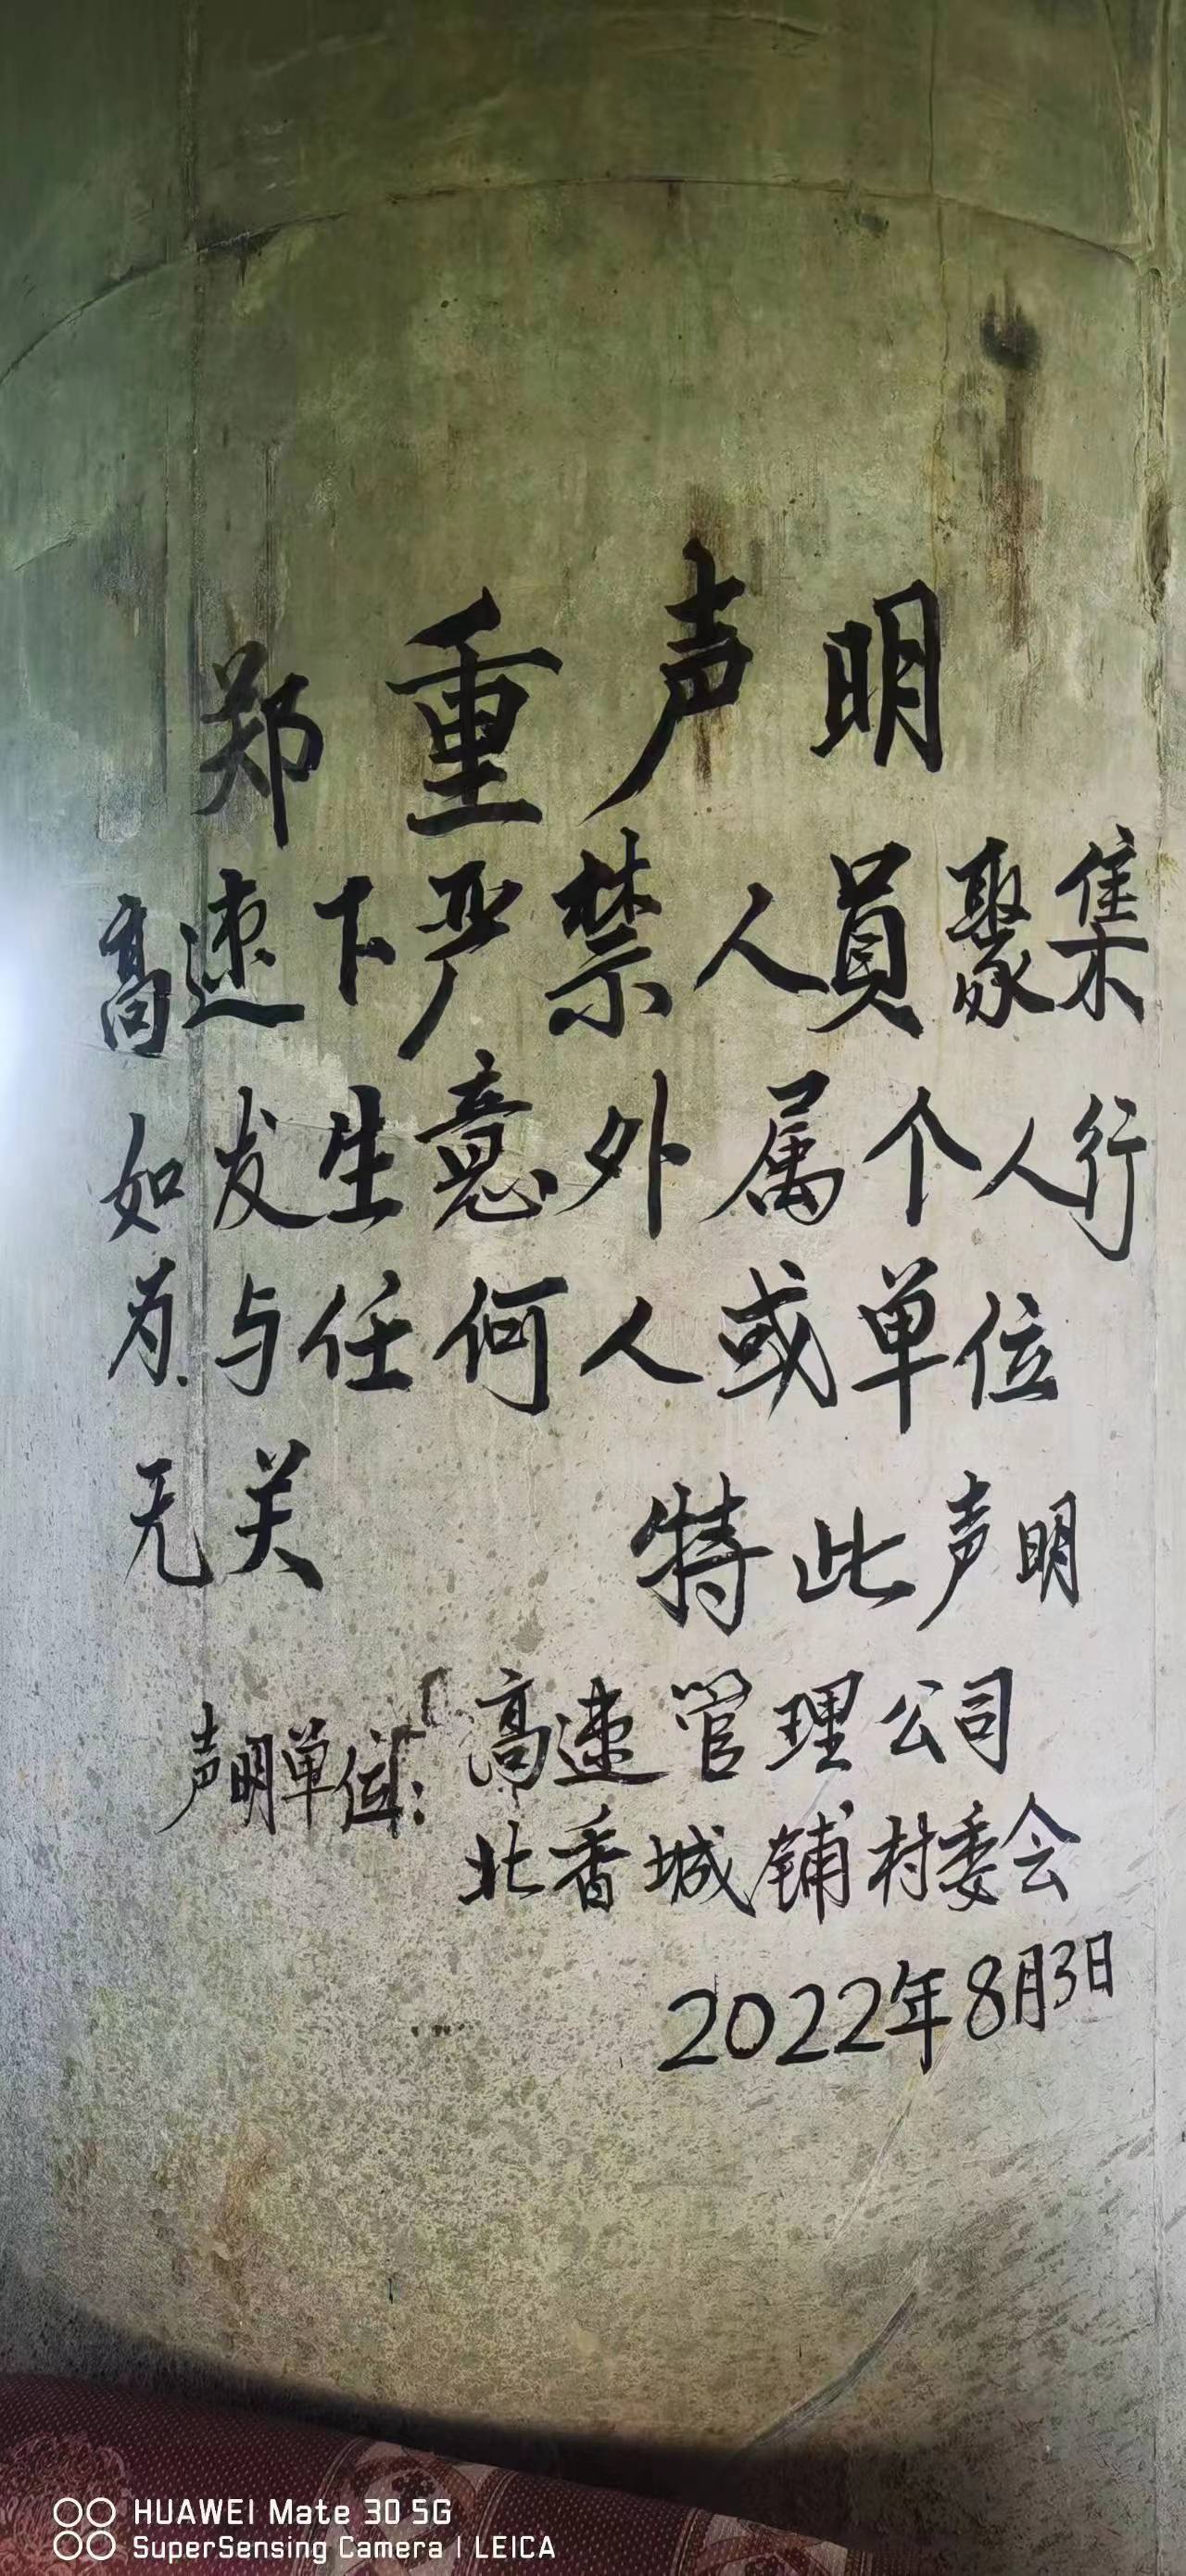 郑重声明
高速下严禁人员聚集
如发生意外属个人行
为与任何人或单位
无关 特此声明
声明单位：高速管理公司
北香城铺村委会
2022年8月3日
HUAWEI Mate 30 5G
SuperSensing Camera | LEICA